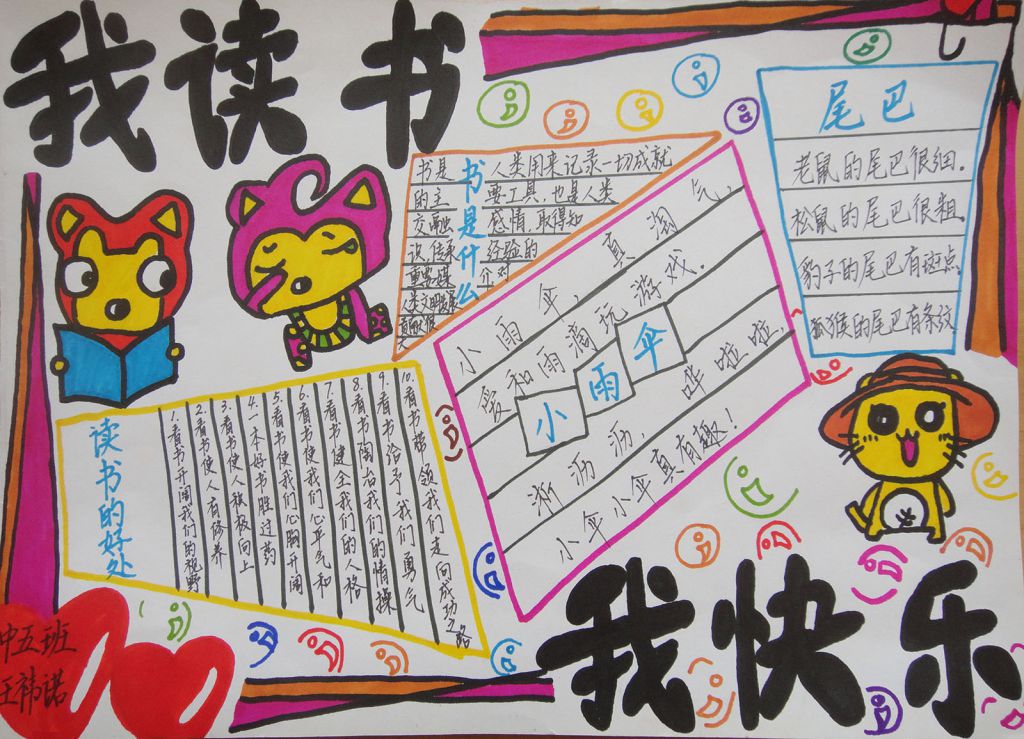 我读书
书是什么
书是人类用来记录一切成就
的主要工具,也是人类
交融感情,取得知
识,传承经验的
重要媒介,对
人类文明
小雨伞
小雨伞,真淘气,
爱和雨滴玩游戏。
淅沥沥,哗啦啦,
小伞小伞真有趣!
尾巴
老鼠的尾巴很细。
松鼠的尾巴很粗
豹子的尾巴有斑点
狐猴的尾巴有条纹
读书的好处
1.看书开阔我们的视野
2.看书使人有修养
3.看书使人积极向上
4.一本好书胜过药
5.看书使我们心胸开阔
6.看书使我们心平气和
7.看书健全我们的人格
8.看书陶冶我们的情操
9.看书给予我们勇气
10.看书带领我们走向成功之路
中五班
王祎诺
我快乐